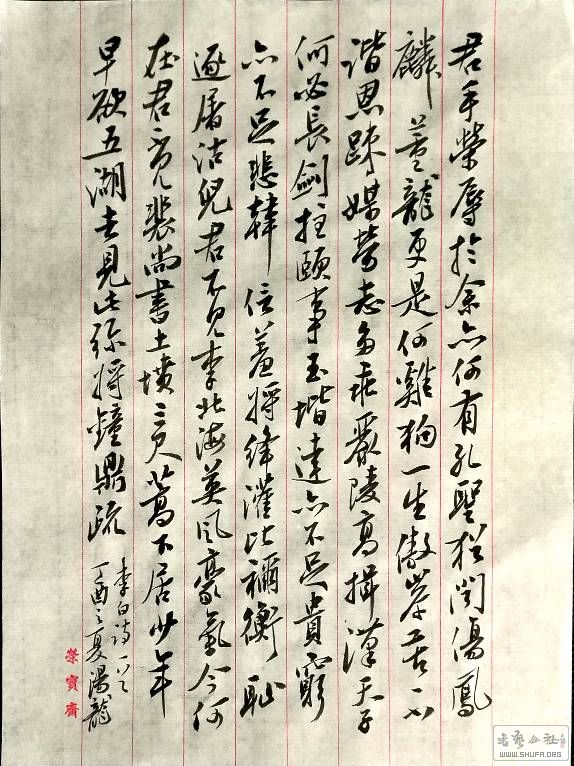 君手榮辱於余亦何有孔聖猶聞傷鳳
麟董龍更是何雞狗一生傲岸苦不
諧恩踈媒勞志多乖嚴陵高揖漢天子
何必長劍拄頤事玉堦達亦不足貴窮
亦不足悲韓信羞將絳灌比禰衡恥
逐屠沽兒君不見李北海英風豪氣今何
在君不見裴尚書土墳三尺蒿下居少年
早欲五湖去見此彌將鐘鼎疏
李白詩一首
丁酉之夏湯龍
榮寶齋
书艺公社
WWW.SHUFA.ORG